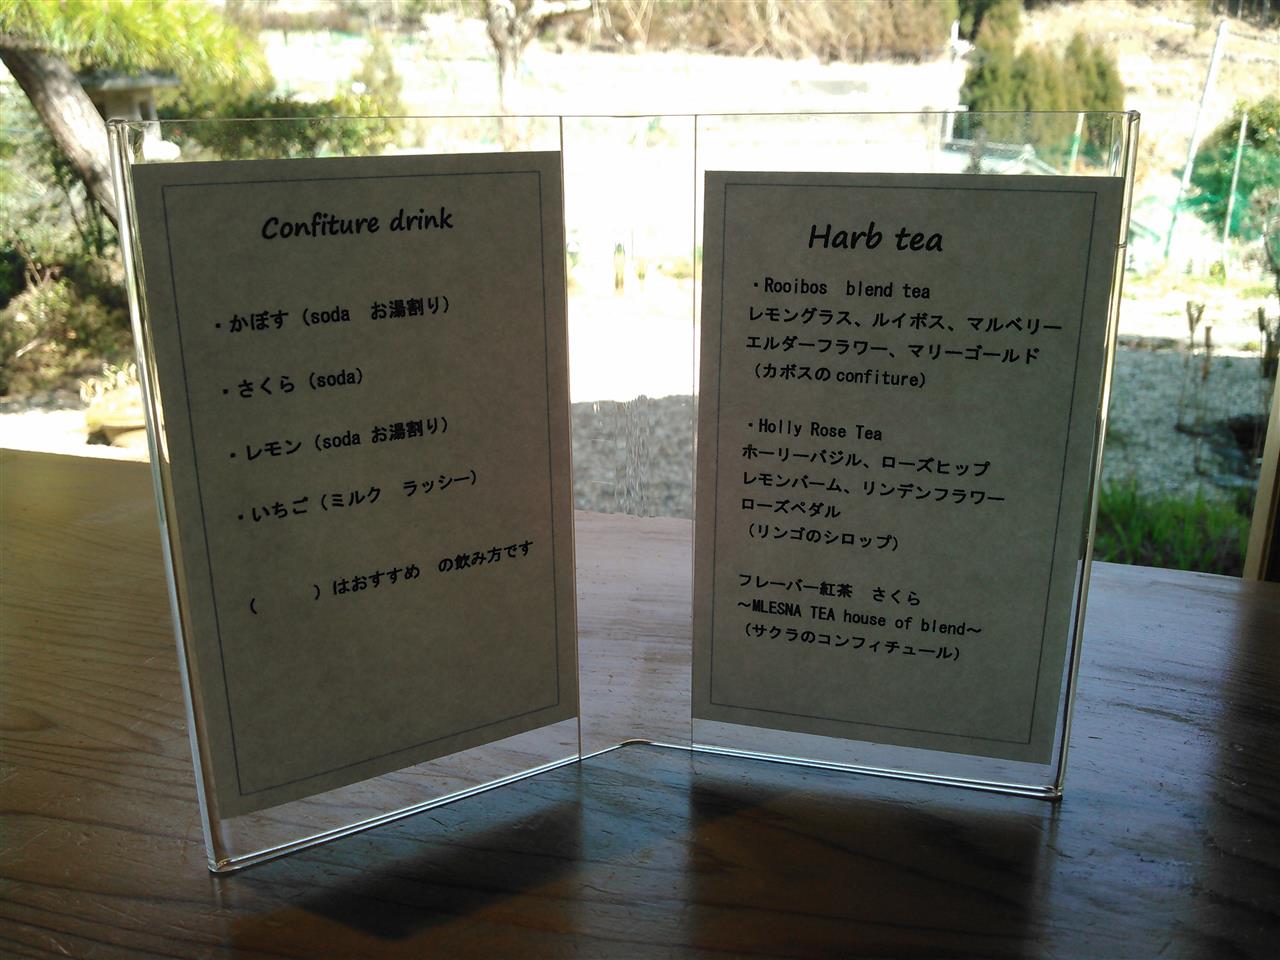 Confiture drink
・かぼす（soda　お湯割り）
・さくら（soda）
・レモン（soda お湯割り）
・いちご（ミルク　ラッシー）
（　　　）はおすすめ　の飲み方です
Harb tea
・Rooibos　blend tea
レモングラス、ルイボス、マルベリー
エルダーフラワー、マリーゴールド
（カボスのconfiture）
・Holly Rose Tea
ホーリーバジル、ローズヒップ
レモンバーム、リンデンフラワー
ローズペダル
（リンゴのシロップ）
フレーバー紅茶　さくら
～MLESNA TEA house of blend～
（サクラのコンフィチュール）